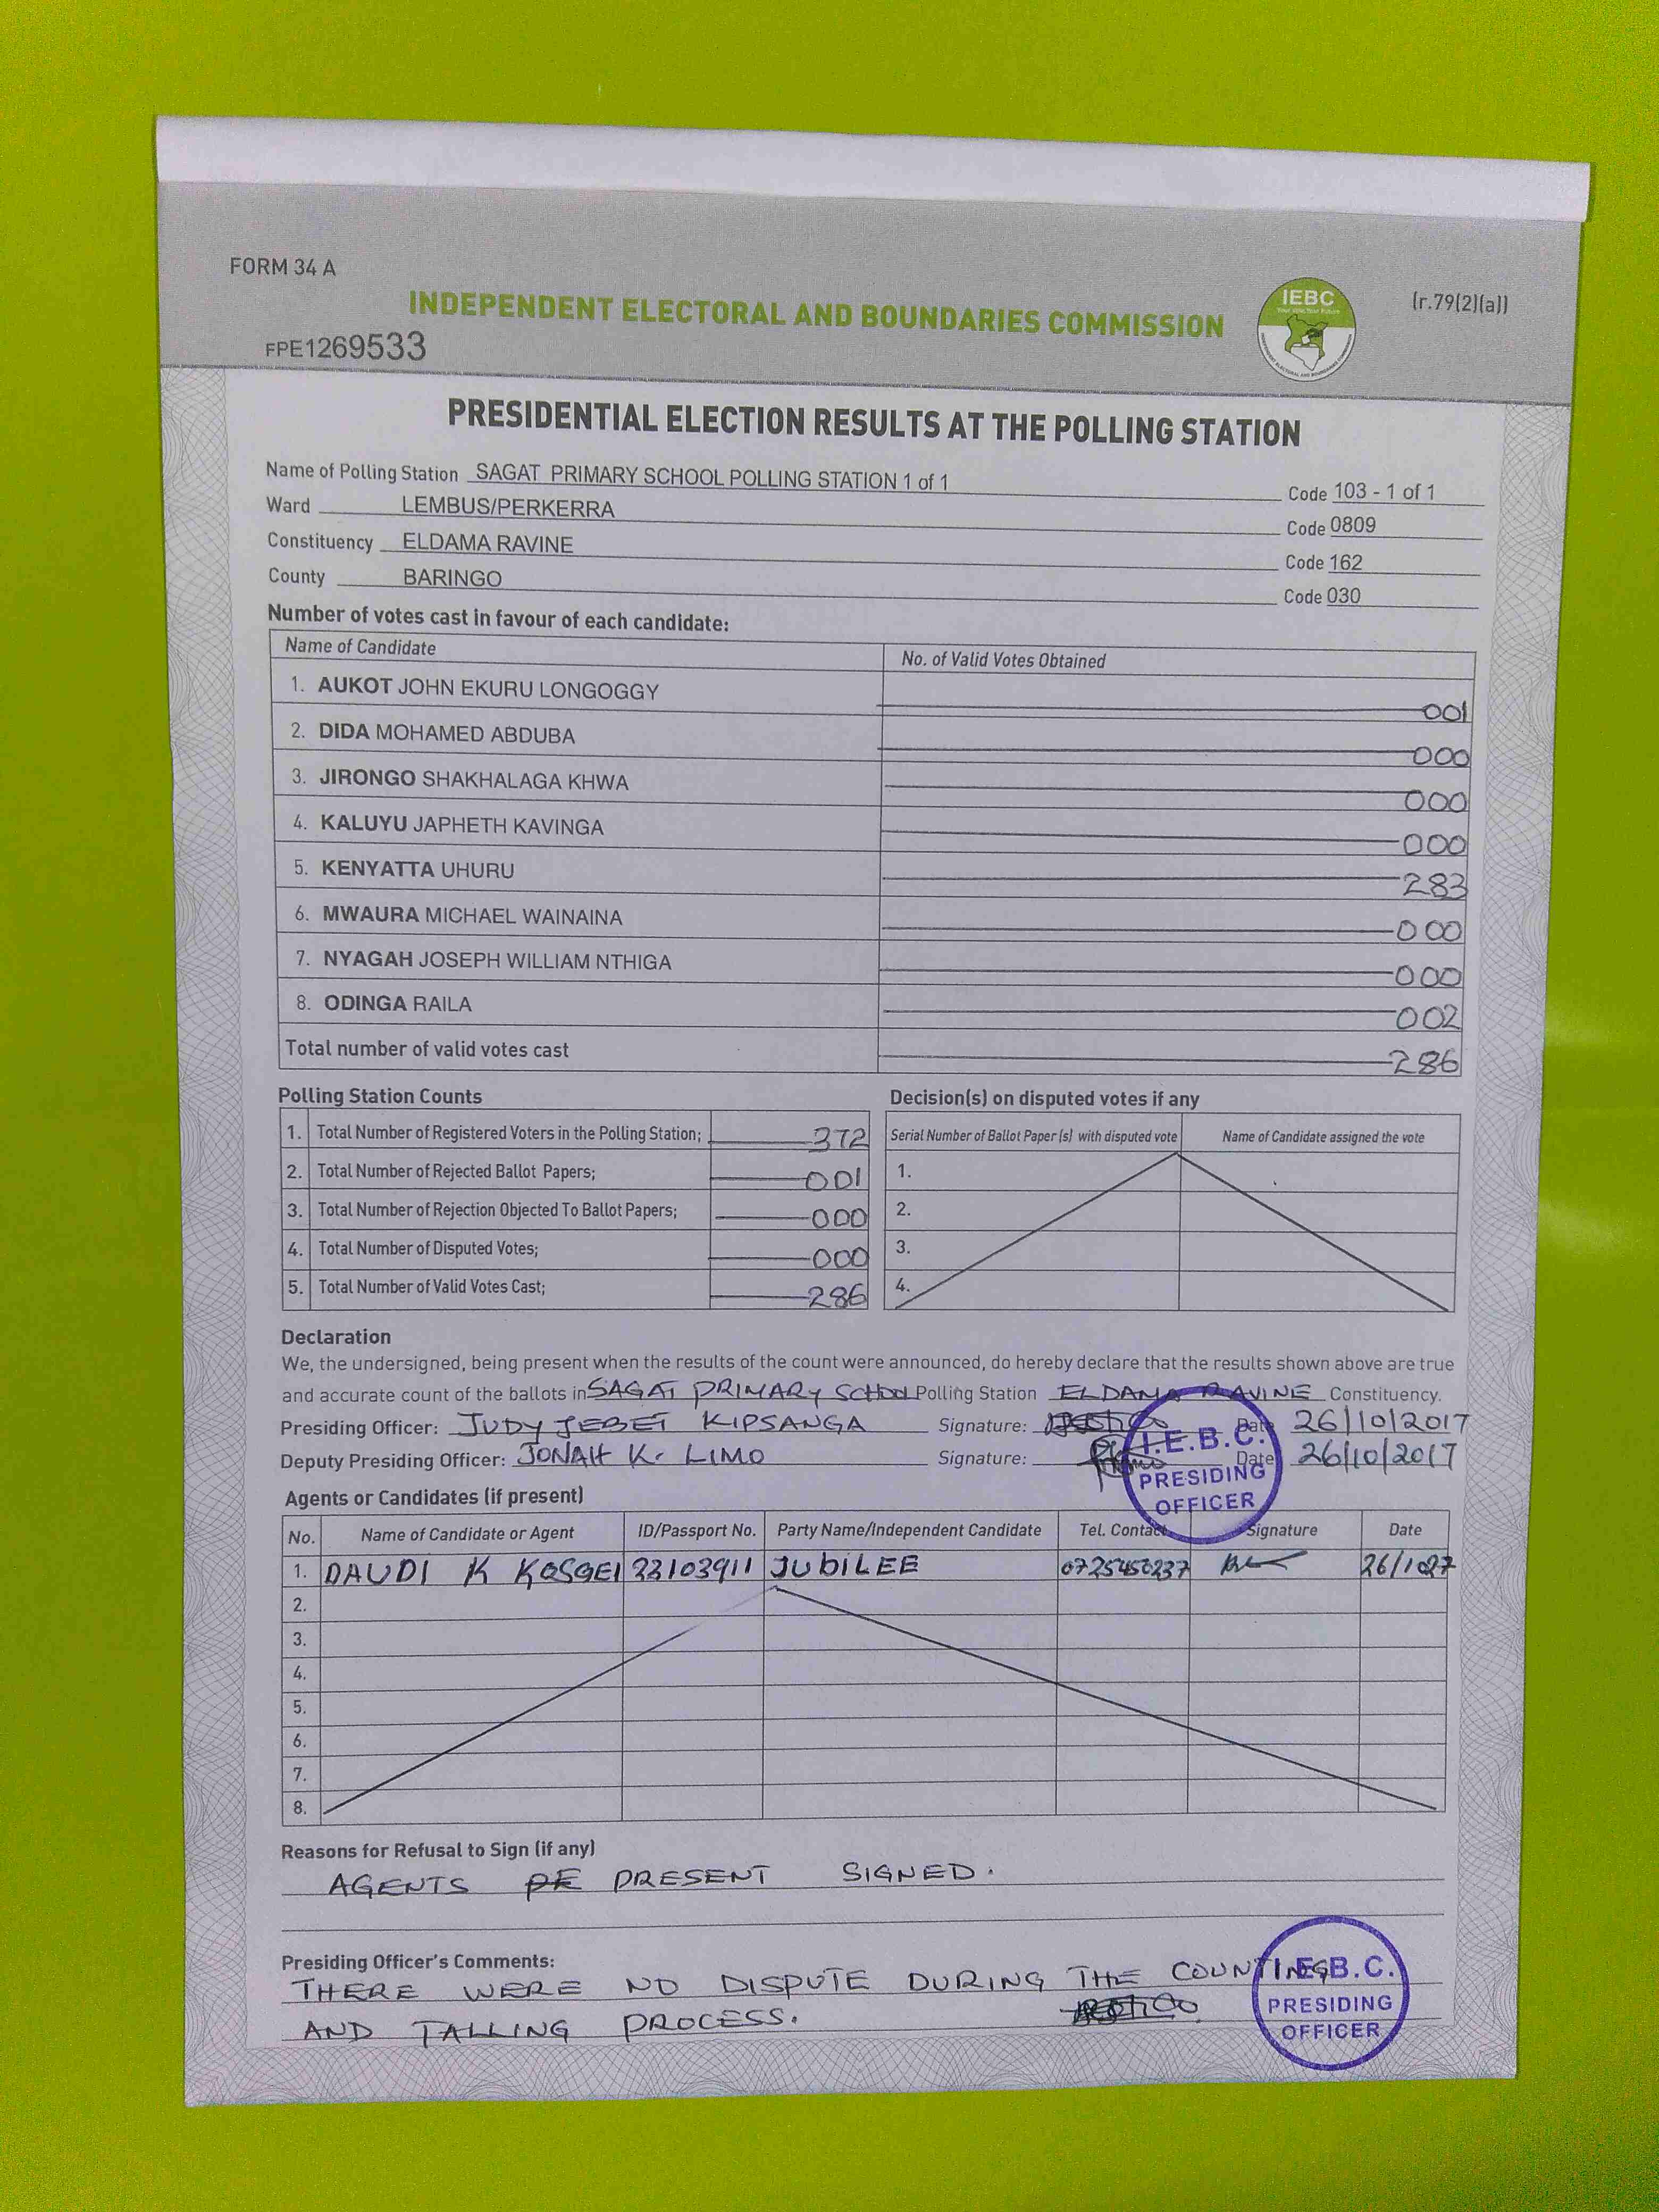 FORM 34 A
INDEPENDENT ELECTORAL AND BOUNDARIES COMMISSION
IEBC
(r.79(2)(a))
FPE1269533
PRESIDENTIAL ELECTION RESULTS AT THE POLLING STATION
Name of Polling Station SAGAT PRIMARY SCHOOL POLLING STATION 1 of 1 Code 103 - 1 of 1
Ward LEMBUS/PERKERRA Code 0809
Constituency ELDAMA RAVINE Code 162
County BARINGO Code 030
Number of votes cast in favour of each candidate:
Name of Candidate No. of Valid Votes Obtained
1. AUKOT JOHN EKURU LONGOGGY 001
2. DIDA MOHAMED ABDUBA 000
3. JIRONGO SHAKHALAGA KHWA 000
4. KALUYU JAPHETH KAVINGA 000
5. KENYATTA UHURU 283
6. MWAURA MICHAEL WAINAINA 000
7. NYAGAH JOSEPH WILLIAM NTHIGA 000
8. ODINGA RAILA 002
Total number of valid votes cast 286
Polling Station Counts
1. Total Number of Registered Voters in the Polling Station; 372
2. Total Number of Rejected Ballot Papers; 001
3. Total Number of Rejection Objected To Ballot Papers; 000
4. Total Number of Disputed Votes; 000
5. Total Number of Valid Votes Cast; 286
Decision(s) on disputed votes if any
Serial Number of Ballot Paper (s) with disputed vote Name of Candidate assigned the vote
1.
2.
3.
4.
Declaration
We, the undersigned, being present when the results of the count were announced, do hereby declare that the results shown above are true
and accurate count of the ballots in SAGAT PRIMARY SCHOOL Polling Station ELDAMA RAVINE Constituency.
Presiding Officer: JUDY JEBET KIPSANGA Signature: Date 26/10/2017
Deputy Presiding Officer: JONAH K. LIMO Signature: Date 26/10/2017
I.E.B.C.
PRESIDING
OFFICER
Agents or Candidates (if present)
No. Name of Candidate or Agent ID/Passport No. Party Name/Independent Candidate Tel. Contact Signature Date
1. DAUDI K KOSGEI 22103911 JUBILEE 0725450237
2.
3.
4.
5.
6.
7.
8.
Reasons for Refusal to Sign (if any)
AGENTS PRESENT SIGNED.
Presiding Officer's Comments:
THERE WERE NO DISPUTE DURING THE COUNTING
AND TALLING PROCESS.
I.E.B.C.
PRESIDING
OFFICER